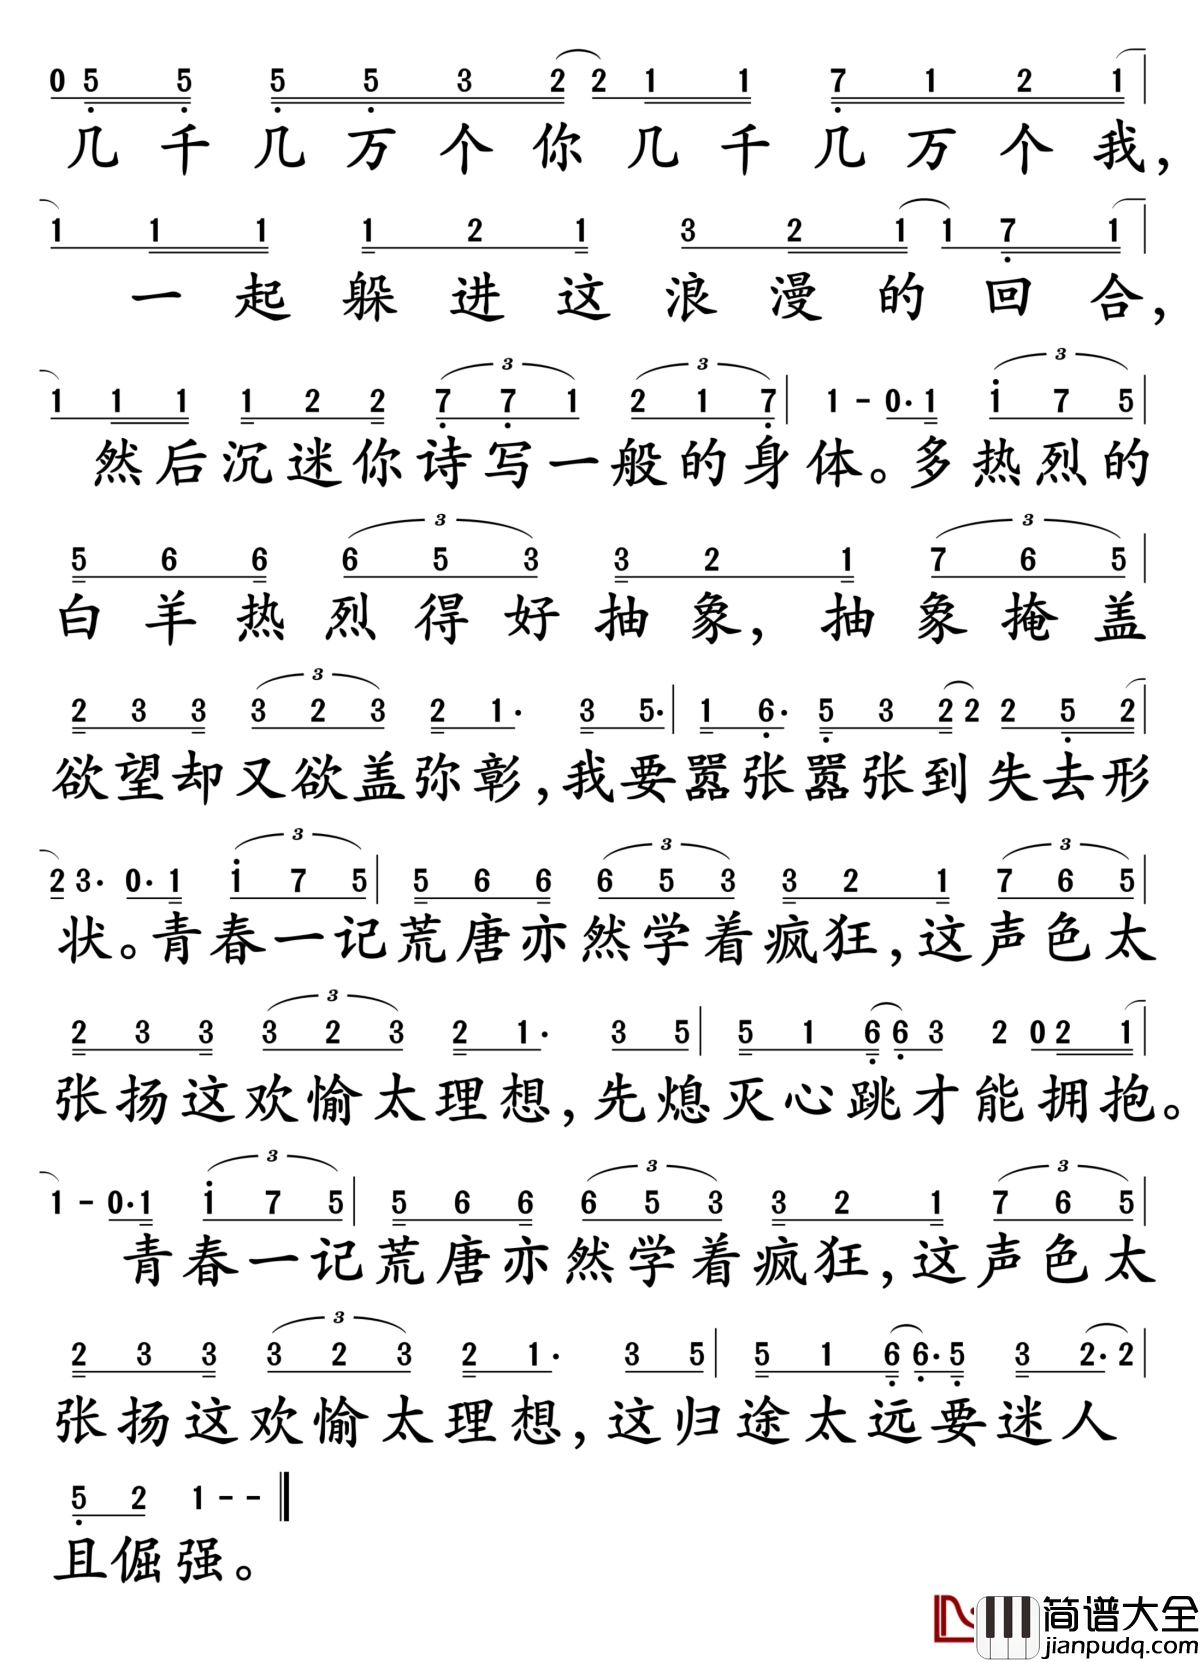 0 5 5 5 5 3 2 2 1 1 7 1 2 1
几千几万个你几千几万个我，
1 1 1 1 2 1 3 2 1 1 7 1
一起躲进这浪漫的回合，
3 3 3
1 1 1 1 2 2 7 7 1 2 1 7 1 - 0· 1 1 7 5
然后沉迷你诗写一般的身体。多热烈的
3 3
5 6 6 6 5 3 3 2 1 7 6 5
白羊热烈得好抽象，抽象掩盖
3
2 3 3 3 2 3 2 1· 3 5· 1 6· 5 3 2 2 2 5 2
欲望却又欲盖弥彰，我要嚣张嚣张到失去形
3 3 3
2 3· 0· 1 1 7 5 5 6 6 6 5 3 3 2 1 7 6 5
状。青春一记荒唐亦然学着疯狂，这声色太
3
2 3 3 3 2 3 2 1· 3 5 5 1 6 6 3 2 0 2 1
张扬这欢愉太理想，先熄灭心跳才能拥抱。
3 3 3
1 - 0· 1 1 7 5 5 6 6 6 5 3 3 2 1 7 6 5
青春一记荒唐亦然学着疯狂，这声色太
3
2 3 3 3 2 3 2 1· 3 5 5 1 6 6· 5 3 2· 2
张扬这欢愉太理想，这归途太远要迷人
5 2 1 - -
且倔强。
简谱大全
jianpudq.com